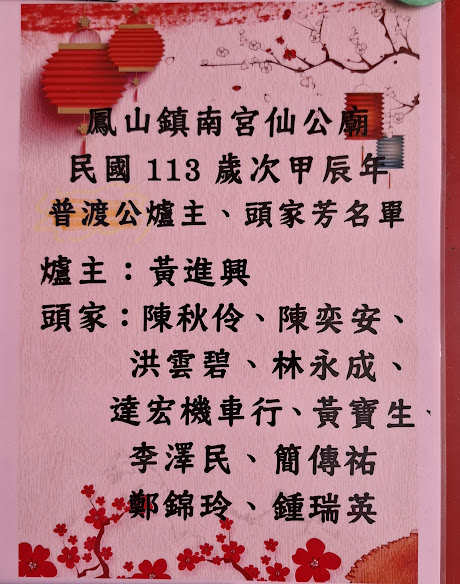 鳳山鎮南宮仙公廟
民國 113 歲次甲辰年
普渡公爐主、頭家芳名單
爐主：黃進興
頭家：陳秋伶、陳奕安、
洪雲碧、林永成、
達宏機車行、黃寶生、
李澤民、簡傳祐
鄭錦玲、鍾瑞英